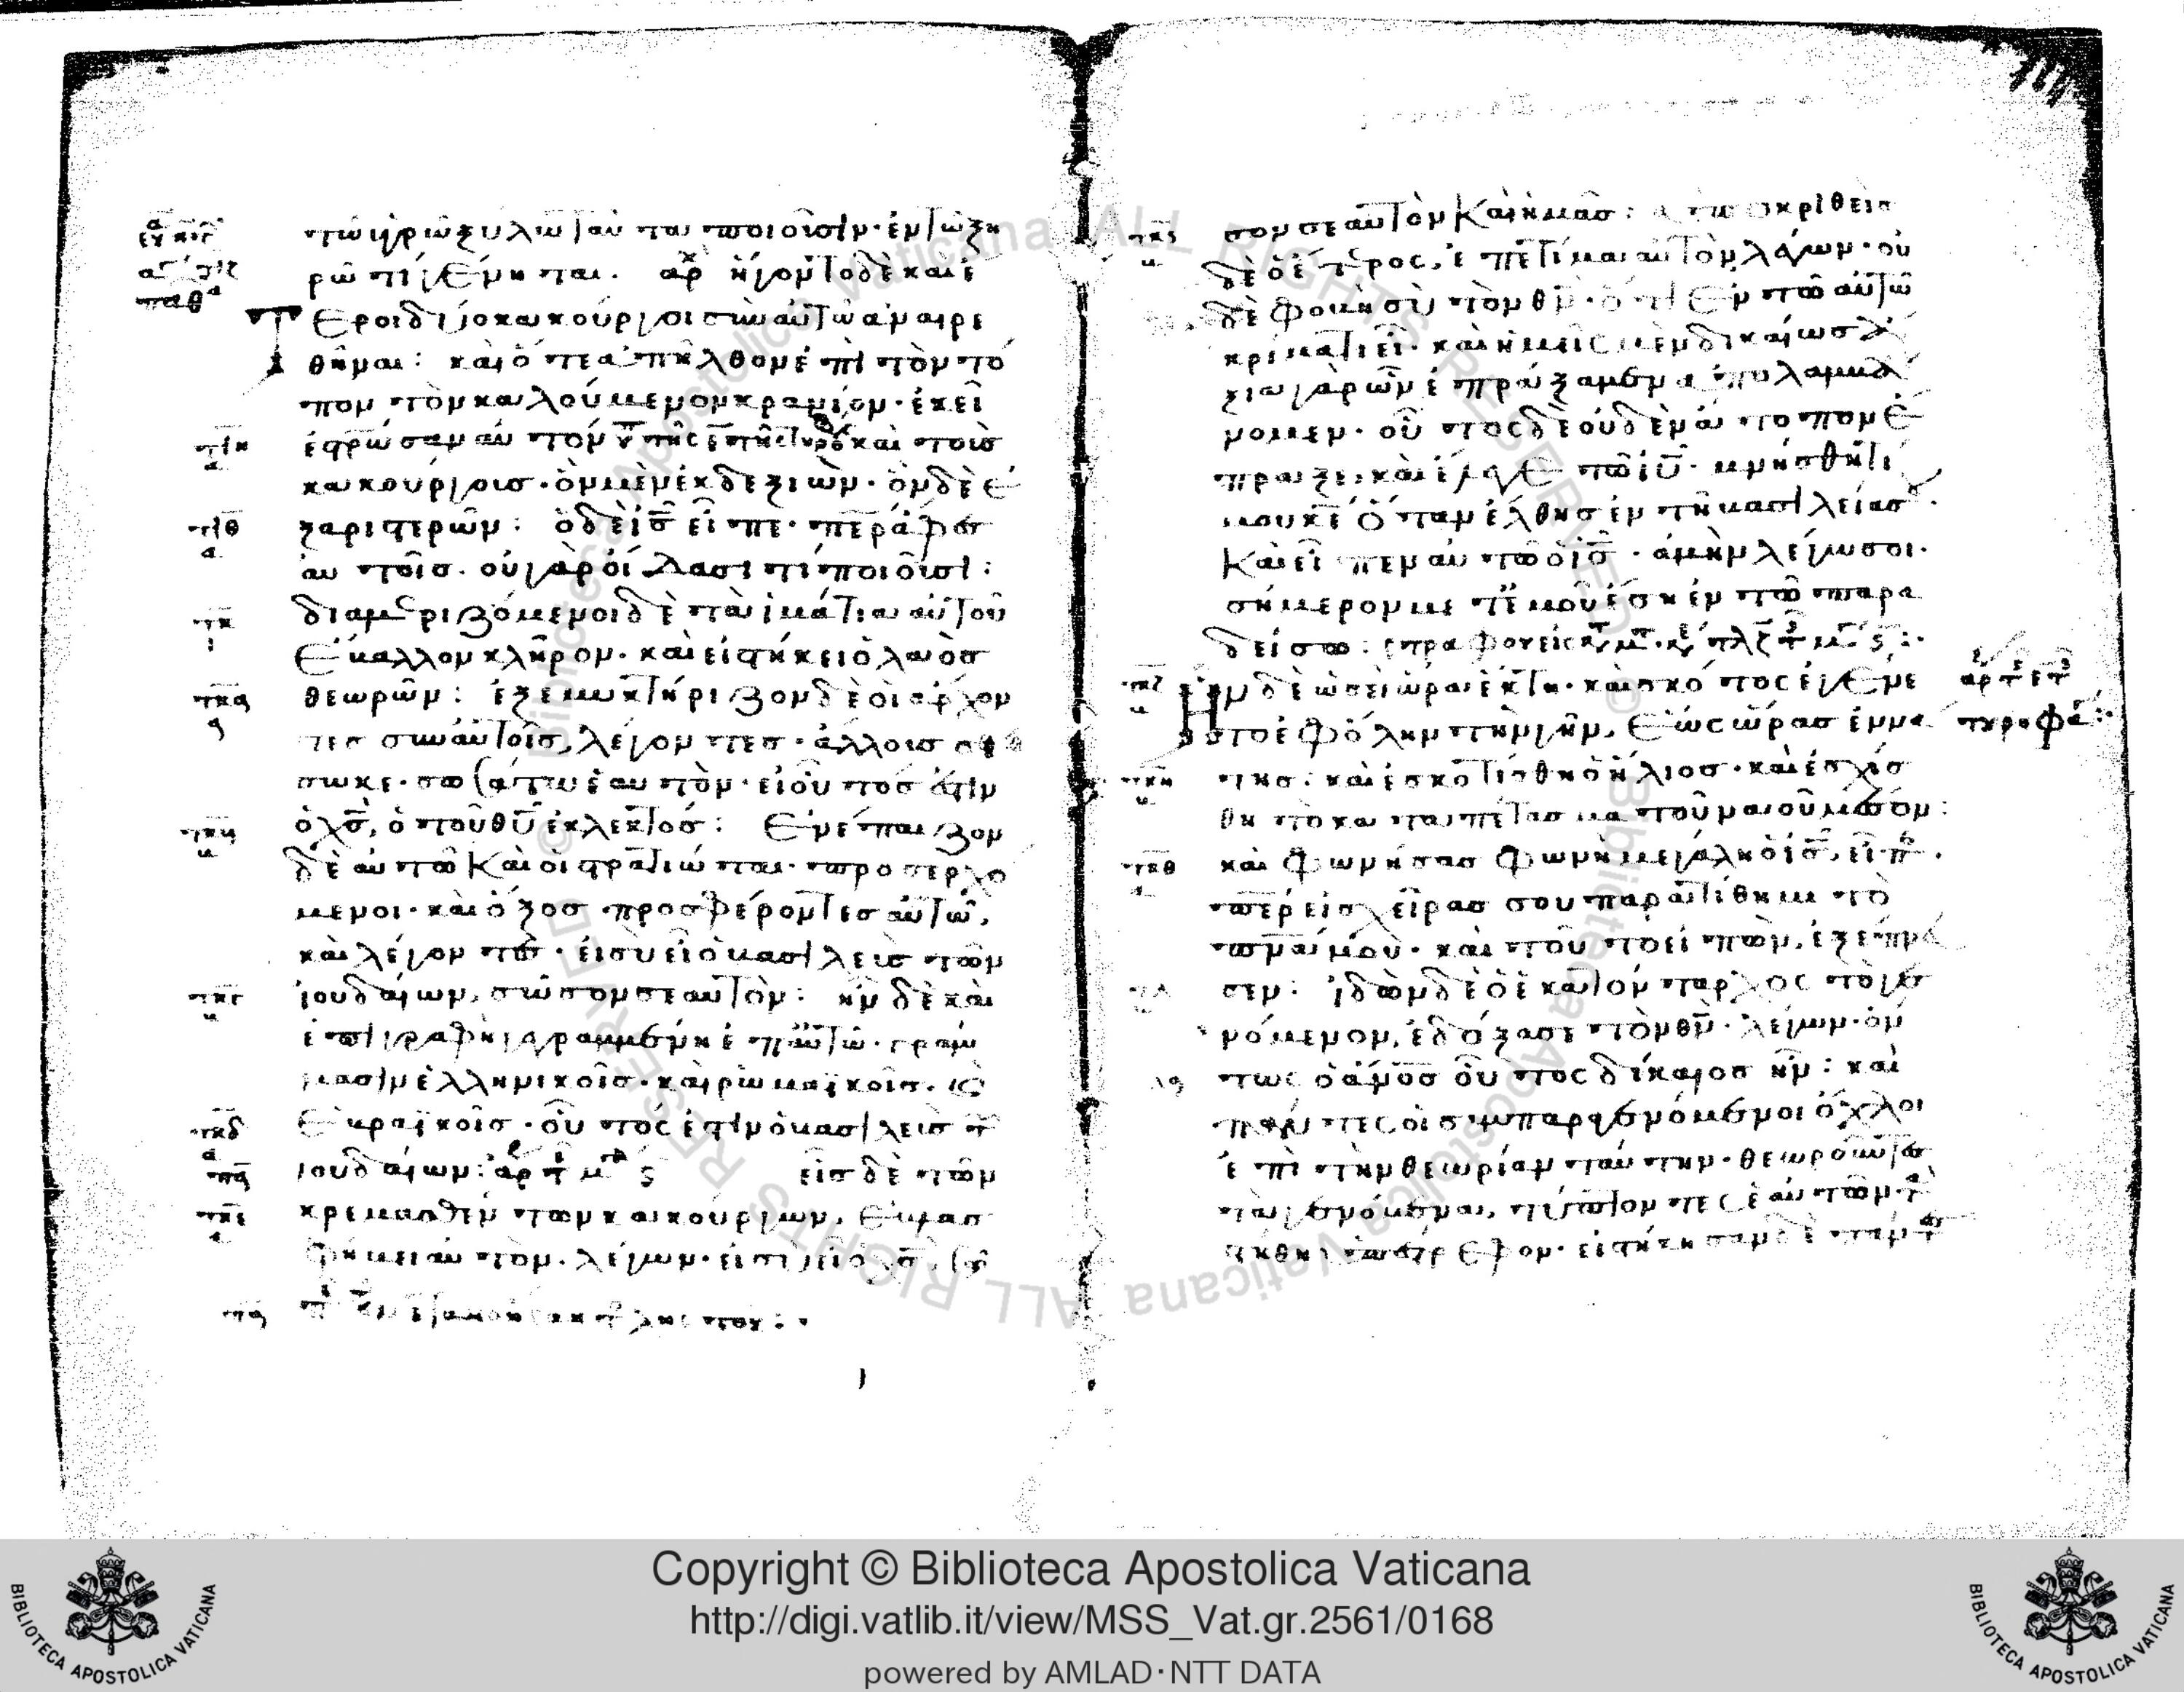 τῶ ὑγρῶ ξυλω ταῦται ποιοῦσιν· ἐν τῶ ξη
ρῶ τί γένηται. ἤγοντο δὲ καὶ ἕ
τεροι δύο κακοῦργοι σὺν αὐτῶ ἀναιρε
θῆναι: καὶ ὅτε ἀπῆλθον ἐπὶ τὸν τό
πον τὸν καλούμενον κρανίον· ἐκεῖ
ἐσταύρωσαν αὐτὸν καὶ τοὺσ
κακούργουσ· ὃν μὲν ἐκ δεξιῶν· ὃν δὲ ἐ
ξαριστερῶν: ὁ δὲ ἰσ̅ εἶπε· περ ἄφεσ
αὐτοῖσ. οὐ γὰρ οἴδασι τί ποιοῦσι:
διαμεριζόμενοι δὲ τὰ ἱμάτια αὐτοῦ
ἔβαλλον κλῆρον· καὶ εἱστήκει ὁ λαὸσ
θεωρῶν: ἐξεμυκτήριζον δὲ οἱ ἄρχον
τεσ σὺν αὐτοῖσ, λέγοντεσ· ἄλλουσ ἔ
σωκε· σωσάτω ἑαυτὸν· εἰ οὗτοσ ἐστιν
ὁ χσ̅, ὁ τοῦ θυ̅ ἐκλεκτόσ: ἐνέπαιζον
δὲ αὐτῶ καὶ οἱ στρατιῶται· προσερχό
μενοι· καὶ ὄξοσ προσφέροντεσ αὐτῶ,
καὶ λέγοντεσ· εἰ σὺ εἶ ὁ βασιλεὺσ τῶν
ἰουδαίων, σῶσον σεαυτὸν: ἦν δὲ καὶ
ἐπιγραφὴ γεγραμμένη ἐπ αὐτῶ· γράμ
μασιν ἑλληνικοῖσ· καὶ ρωμαϊκοῖσ· κ
ἑβραϊκοῖσ· οὗτός ἐστιν ὁ βασιλεὺσ τ
ἰουδαίων: εἷσ δὲ τῶν
κρεμασθέντων κακούργων, ἐβλασ
φήμει αὐτὸν. λέγων· εἰ σὺ εἶ ὁ χσ̅, σῶ
σον σεαυτὸν καὶ ἡμᾶσ: ἀποκριθεὶσ
δὲ ὁ ἕτερος, ἐπετίμαι αὐτὸν λέγων· οὐ
δὲ φοβῆ σὺ τὸν θν̅· ὅτι ἐν τῶ αὐτῶ
κρίματι εἶ· καὶ ἡμεῖς μὲν δικαίωσ ἄ
ξια γὰρ ὧν ἐπράξαμεν ἀπολαμβά
νομεν· οὗτος δὲ οὐδὲν ἄτοπον ἔ
πραξε· καὶ ἔλεγε τῶ ἰυ̅· μνήσθητί
μου κε̅ ὅταν ἔλθησ ἐν τῆ βασιλεία σ
καὶ εἶπεν αὐτῶ ὁ ἰσ̅· ἀμὴν λέγω σοι·
σήμερον μετ ἐμοῦ ἔση ἐν τῶ παρα
δείσω:
Ἦν δὲ ὡσεὶ ὥρα ἕκτη· καὶ σκότος ἐγένε
το ἐφ ὅλην τὴν γῆν, ἕως ὥρασ ἐννά
τησ: καὶ ἐσκοτίσθη ὁ ἥλιοσ· καὶ ἐσχίσ
θη τὸ καταπέτασμα τοῦ ναοῦ μέσον:
καὶ φωνήσασ φωνῆ μεγάλη ὁ ἰσ̅, εἶπ.
περ εἰσ χεῖρασ σου παρατίθημι τὸ
πνα̅ μου· καὶ τοῦτο εἰπὼν, ἐξέπνευ
σεν: ἰδὼν δὲ ὁ ἑκατόνταρχος τὸ γε
νόμενον, ἐδόξασε τὸν θν̅· λέγων· ὄν
τως ὁ ἄνοσ̅ οὗτος δίκαιοσ ἦν: καὶ
πάντες οἱ συμπαραγενόμενοι ὄχλοι
ἐπὶ τὴν θεωρίαν ταύτην· θεωροῦντεσ
τὰ γενόμενα, τύπτοντες ἑαυτῶν τ
στήθη ὑπέστρεφον· εἱστήκησαν δὲ πάντεσ